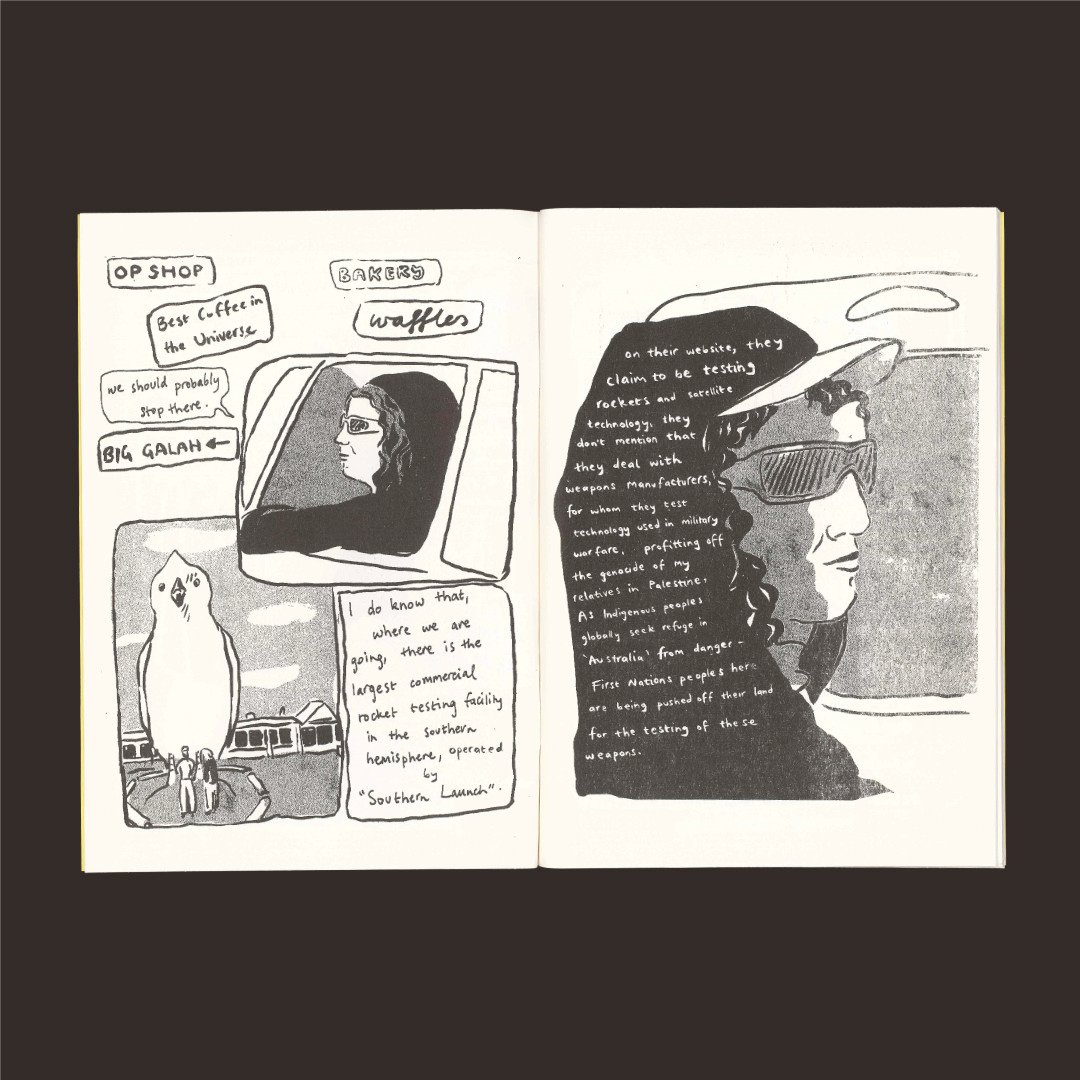 OP SHOP
BAKERY
Best Coffee in
the Universe
waffles
we should probably
stop there.
BIG GALAH ←
I do know that,
where we are
going, there is the
largest commercial
rocket testing facility
in the southern
hemisphere, operated
by
"Southern Launch".
on their website, they
claim to be testing
rockets and satellite
technology. they
don't mention that
they deal with
weapons manufacturers,
for whom they test
technology used in military
warfare, profitting off
the genocide of my
relatives in Palestine.
As Indigenous peoples
globally seek refuge in
'Australia' from danger -
First Nations peoples here
are being pushed off their land
for the testing of these
weapons.